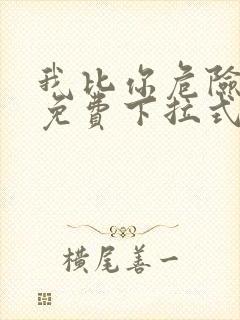 我比你危險
免費下拉式
橫尾善一